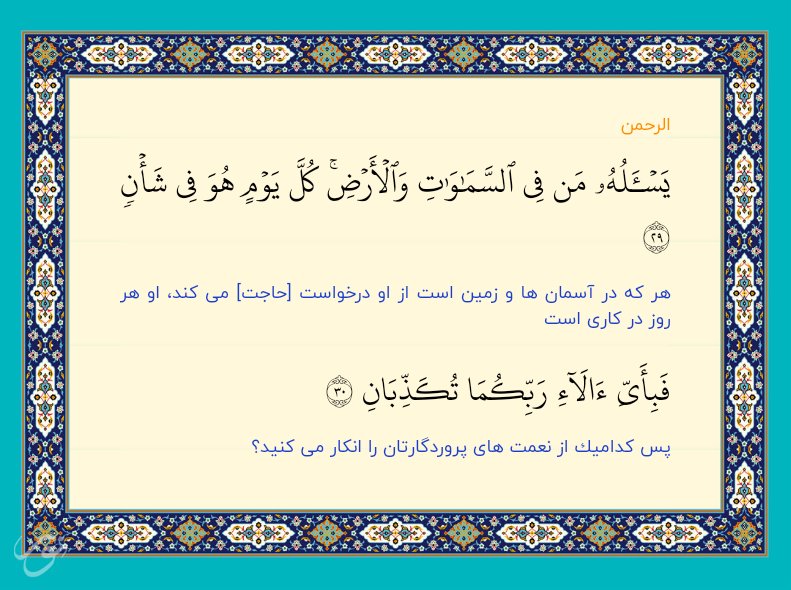 الرحمن
يَسْـَٔلُهُۥ مَن فِى ٱلسَّمَـٰوَٰتِ وَٱلْأَرْضِ ۚ كُلَّ يَوْمٍ هُوَ فِى شَأْنٍۢ
﴿٢٩﴾
هر که در آسمان ها و زمین است از او درخواست [حاجت] می کند، او هر
روز در کاری است
فَبِأَىِّ ءَالَآءِ رَبِّكُمَا تُكَذِّبَانِ ﴿٣٠﴾
پس كدامیك از نعمت های پروردگارتان را انکار می کنید؟